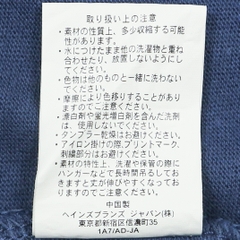 取り扱い上の注意
・素材の性質上、多少収縮する可能
性があります。
・水につけたまま他の洗濯物と重ね
合わせたり、放置しないようにし
てください。
・色物は他のものと一緒に洗わない
でください。
・摩擦により色移りすることがあり
ますのでご注意ください。
・漂白剤や蛍光増白剤を含んだ洗剤
は、使用しないでください。
・タンブラー乾燥はお避けください。
・アイロン掛けの際、プリントマーク、
刺繍部分はお避けください。
・素材の特性上、洗濯や保管の際に
ハンガーなどで長時間吊るしてお
きますと伸びることがありますの
でご注意ください。
中国製
ヘインズブランズ ジャパン(株)
東京都新宿区信濃町35
1A7/AD-JA